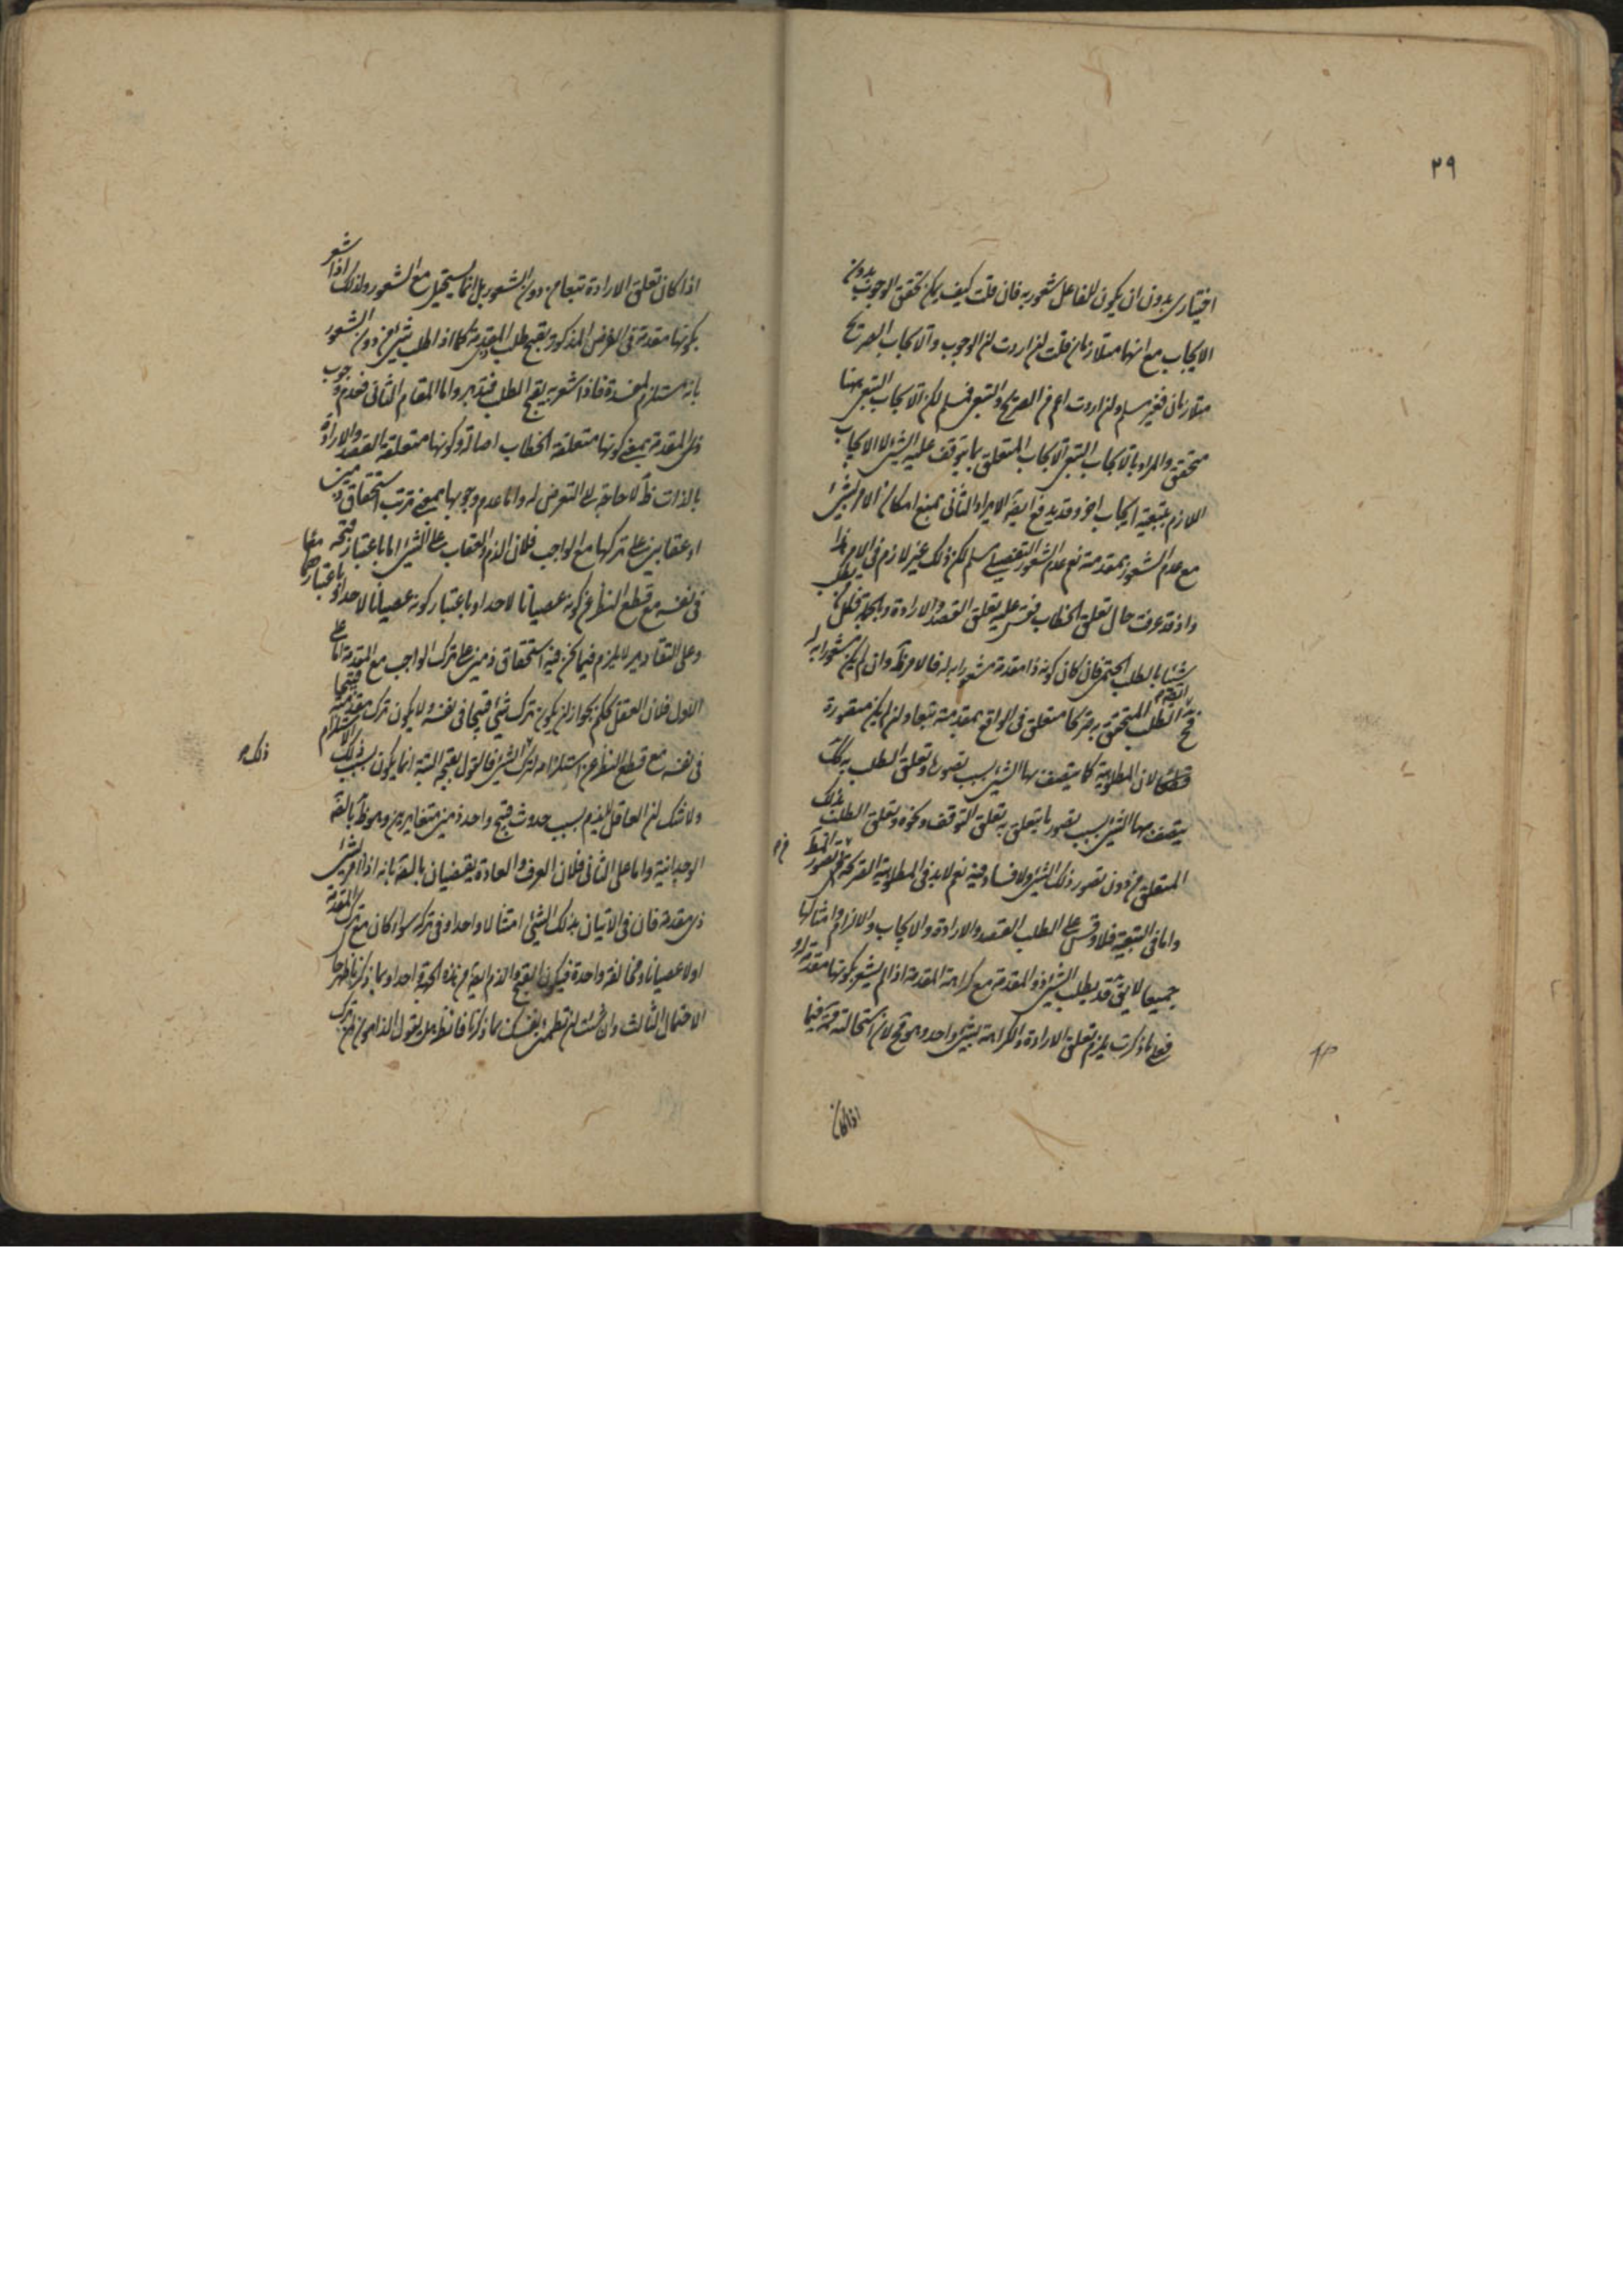 ٢٩
اختياري بدون ان يكون للفاعل شعور به فان قلت كيف يمكن تحقق الوجوب بدون
الايجاب مع انهما متلازمان قلت ان اردت ان الوجوب والايجاب الصريح
متلازمان فغير مسلم وان اردت اعم من الصريح والتبعي فمسلم لكن الايجاب التبعي ههنا
متحقق والمراد بالايجاب التبعي الايجاب المتعلق بما يتوقف عليه الشيء لا الايجاب
اللازم بتبعية ايجاب اخر وقد يدفع ايضا الايراد الثاني بمنع امكان الامر بشيء
مع عدم الشعور بمقدمته نعم عدم الشعور التفصيلي مسلم لكن ذلك غير لازم في الامر هذا
واذ قد عرفت حال تعلق الخطاب فقس عليه تعلق القصد والارادة وبالجملة فكل من يطلب
شيئا بالطلب الحتمي فان كان كونه ذا مقدمة مشعورا به له فالامر ظ وان لم يكن مشعورا به له
فح الطلب المتحقق يصير متعلق في الواقع بمقدمته تبعا وان لم يكن متصورة
قطعا لان المطلوبية كما يتصف بها الشيء بسبب تصوره وتعلق الطلب به كك
يتصف بها الشيء بسبب تصور ما يتعلق به تعلق التوقف ونحوه وتعلق الطلب بذلك
المتعلق من دون تصور ذلك الشيء ولا فساد فيه نعم لابد في المطلوبية الصريحة من تصور المط
واما في التبعية فلا وقس على الطلب القصد والارادة والايجاب والالزام وامثالها
جميعا لا يق قد يطلب الشيء ذو المقدمة مع كراهة المقدمة اذا لم يشعر بكونها مقدمة له
فعلى ما ذكرت يلزم تعلق الارادة والكراهة بشيء واحد وهو مح لان استحالته فيما
اذا كان
اذا كان تعلق الارادة تبعا من دون الشعور بل انما يستحيل مع الشعور ولذلك اذا شعر
بكونها مقدمة في الفرض المذكور يقبح طلب المقدمة كما اذا طلب شيئا من دون الشعور
بانه مستلزم لمفسدة فاذا شعر به يقبح الطلب فتدبر واما المقام الثاني فعدم وجوب
ذي المقدمة بمعنى كونها متعلقة الخطاب اصالة وكونها متعلقة القصد والارادة
بالذات ظ لا حاجة الى التعرض له واما عدم وجوبها بمعنى ترتب استحقاق ذمين
او عقابين على تركها مع الواجب فلان الذم والعقاب على الشيء اما باعتبار قبحه
في نفسه مع قطع النظر عن كونه عصيانا لاحد او باعتبار كونه عصيانا لاحد او باعتبارهما معا
وعلى التقادير لا يلزم فيما نحن فيه استحقاق ذمين على ترك الواجب مع المقدمة اما على
الاول فلان العقل يحكم بجواز ان يكون ترك شيء قبيحا في نفسه ولا يكون ترك مقدمته قبيحا
في نفسه مع قطع النظر عن استلزامه لترك الشيء فالقول بقبحه البتة انما يكون بسبب ذلك الاستلزام
ولا شك ان العاقل لا يذم بسبب حدوث قبح واحد ذمين متغايرين وهو ظ بالضرورة
الوجدانية واما على الثاني فلان العرف والعادة يقضيان بالبتة بانه اذا امر بشيء
ذي مقدمة فان في الاتيان بذلك الشيء امتثالا واحدا وفي تركه سواء كان مع ترك المقدمة
او لا عصيانا ومخالفة واحدة فيكون القبح والذم ايضا من هذه الجهة واحدا وبما ذكرنا ظهر حال
الاحتمال الثالث وان شئت ان تطمئن نفسك بما ذكرنا فانظر هل يقول الذام من ترك
ذلك